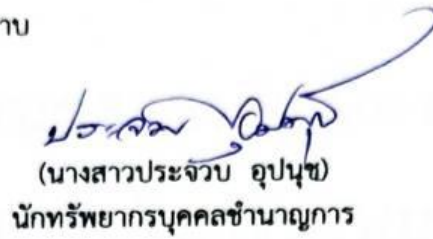 าบ
ประจวบ อุปนุช
(นางสาวประจวบ อุปนุช)
นักทรัพยากรบุคคลชำนาญการ